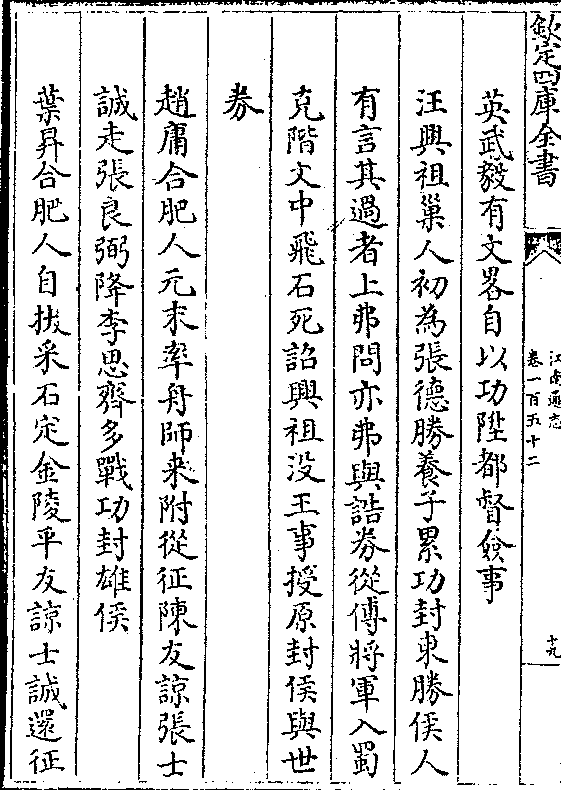 欽定四庫全書
江南通志
卷一百五十二
十九
英武毅有文畧自以功陞都督僉事
汪興祖巢人初為張德勝養子累功封東勝侯人
有言其過者上弗問亦弗與誥券從傅將軍入蜀
克階文中飛石死詔興祖没王事授原封侯與世
券
趙庸合肥人元末率舟師来附從征陳友諒張士
誠走張良弼降李思齊多戰功封雄侯
葉昇合肥人自拔采石定金陵平友諒士誠還征